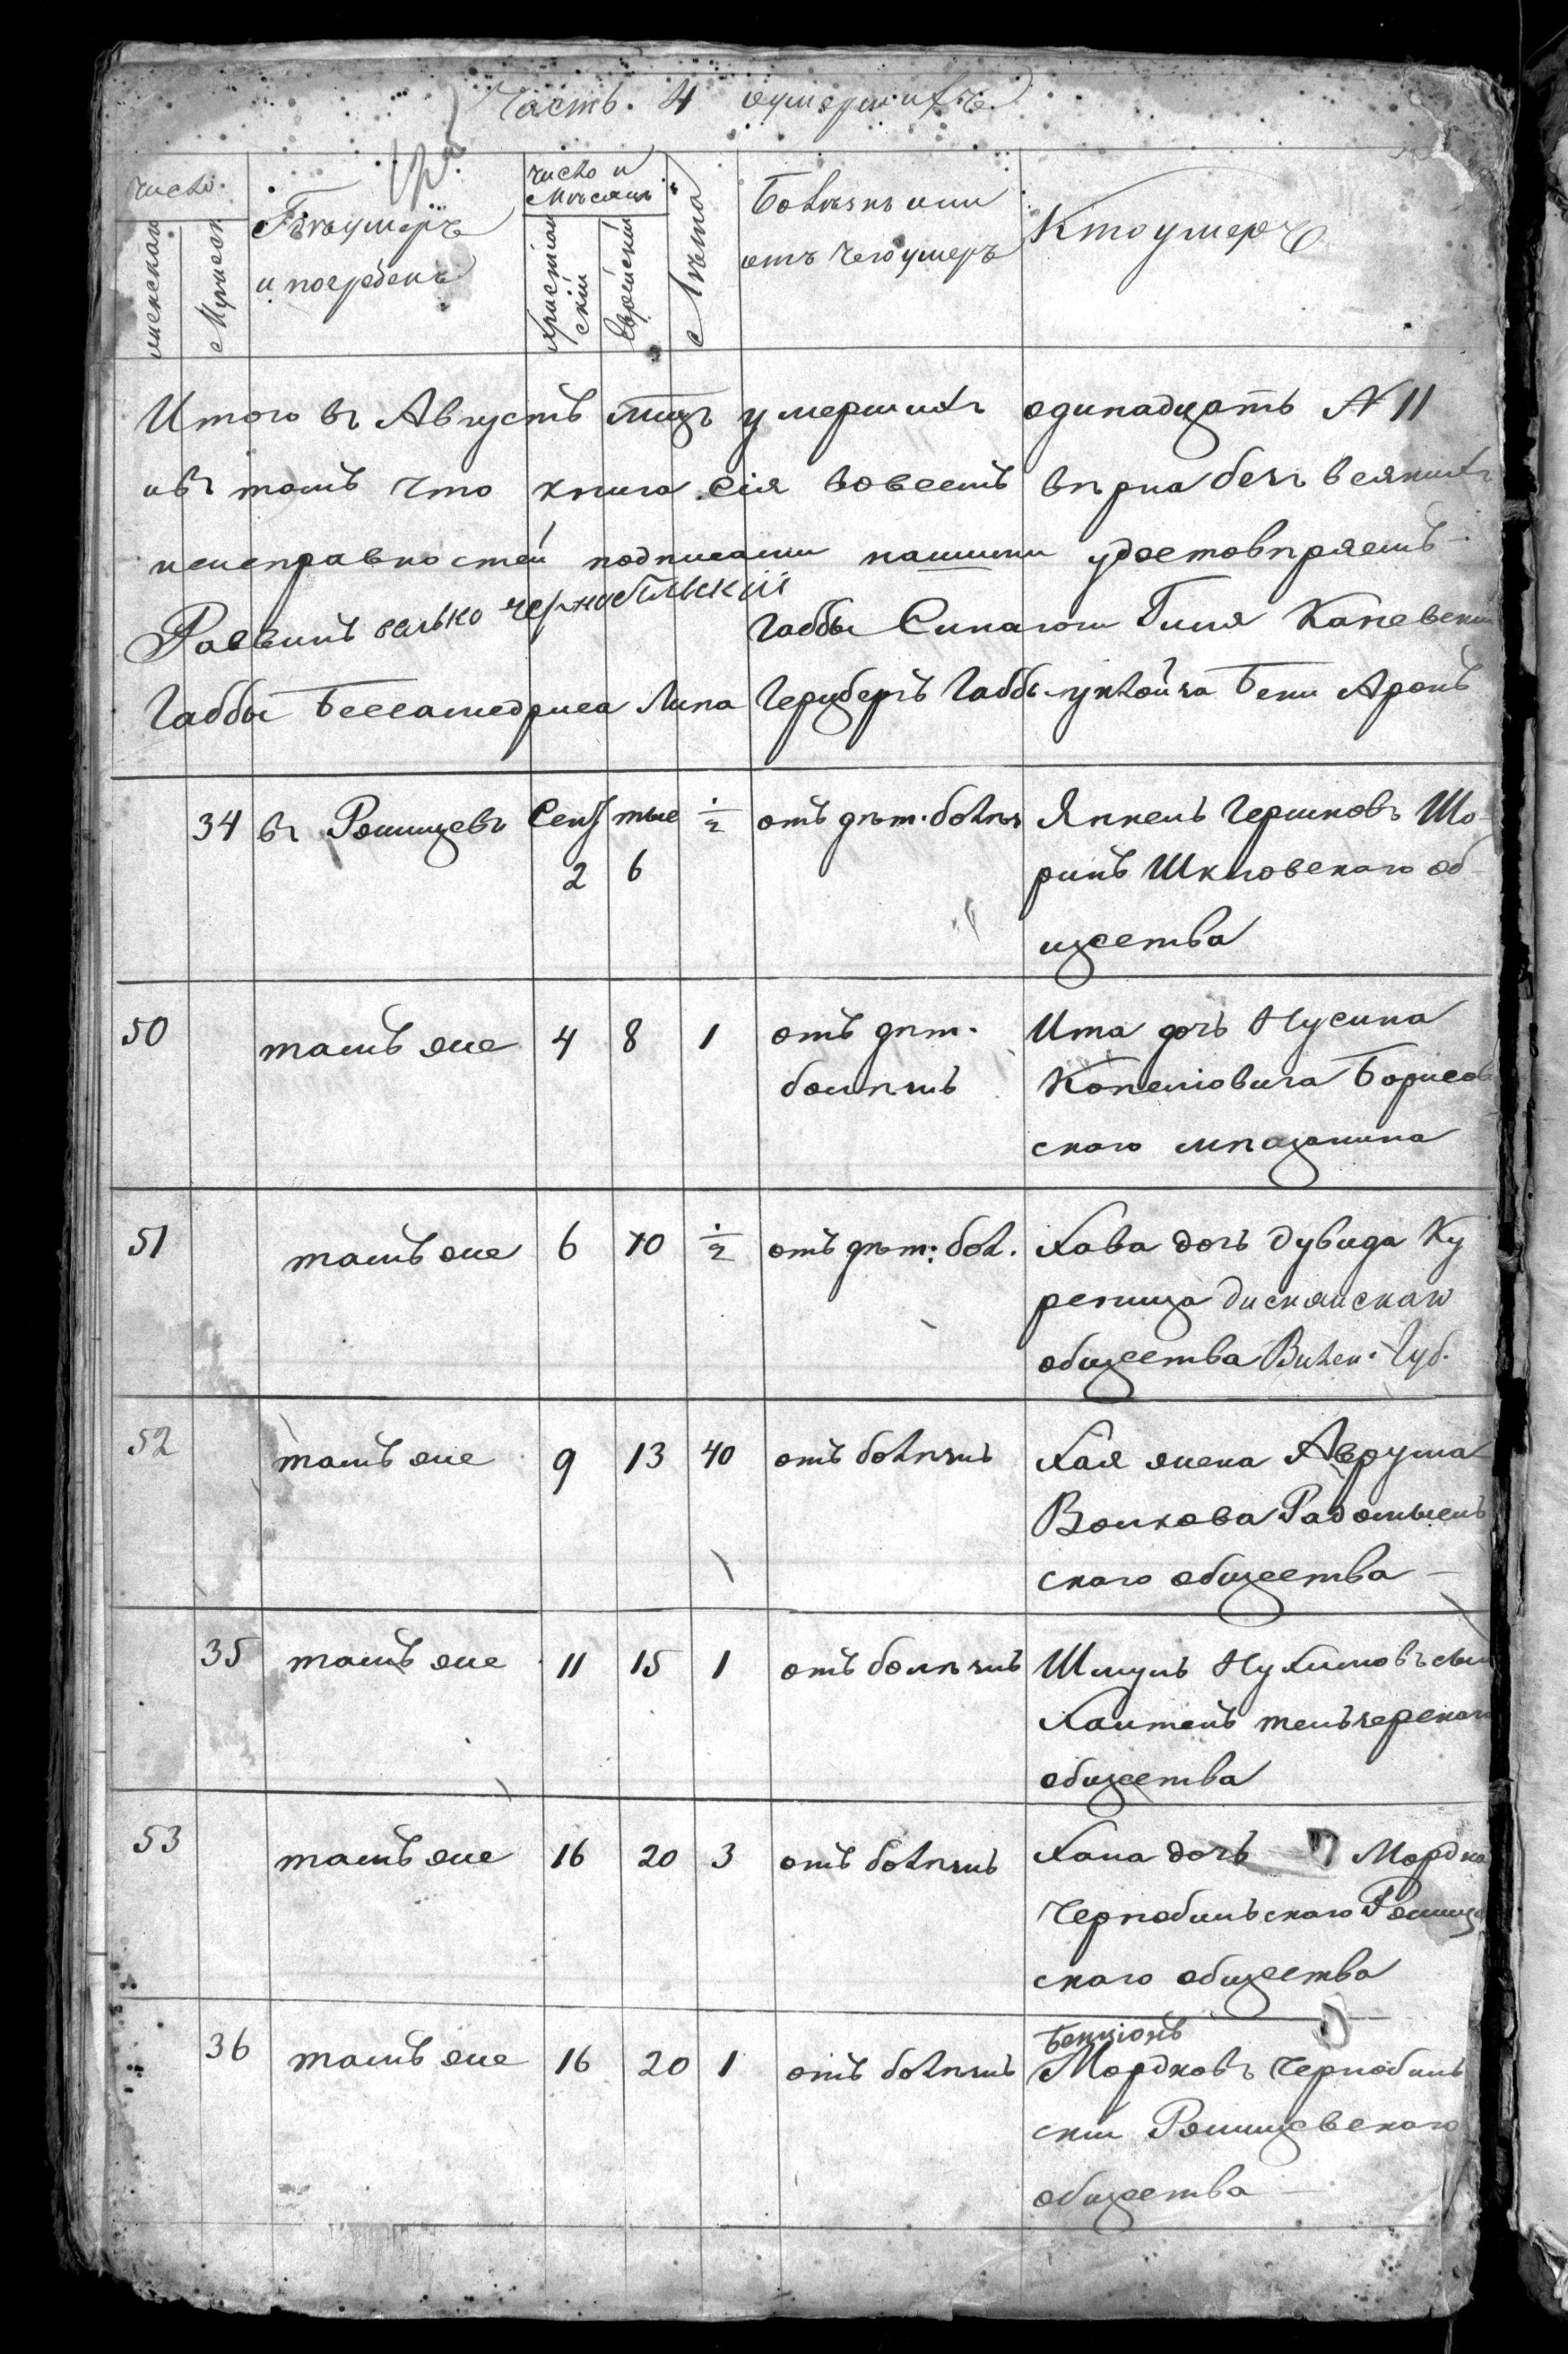 Часть. 4 оумершихъ.
число.
женскои
Мужеск
Гдѣ умеръ
и погребенъ
число и
мѣсяцъ
христіан
скій
Еврейскій
Лѣта
Болѣзнь или
отъ чего умеръ
Кто умеръ
Итого въ Августѣ мцѣ умершихъ одинадцать N 11
въ томъ что книга сія вовсемъ вѣрна безъ всякихъ
неисправностей подписами нашими удостовѣряемъ
Раввинъ Чернобільскій Габбы Синагоги Гиля Каневскій
Габбы Бесгамедриса Липа Герцбергъ Габбы Бени Аронъ
34 въ Ромищевѣ Сент тые 1/2 отъ дѣт. болѣз Янкель Гершковъ Шо-
2 6 ринъ Шкловскаго об-
щества
50 тамъ же 4 8 1 отъ дѣт. Ита дочь Нусина
болѣзнѣ Копеловича Борисов
скаго мѣщанина
51 тамъ же 6 10 1/2 отъ дѣт: бол. Хава дочь Дувида Ку
ренца Диснянскаго
общества Вилен. Губ.
52 тамъ же 9 13 40 отъ болѣзнѣ Хая жена Аврума
Волкова Радомысль
скаго общества
35 тамъ же 11 15 1 отъ болѣзнѣ Шмуль Нухимовъ
общества
53 тамъ же 16 20 3 отъ болѣзнѣ Хана дочь Мордка
Чернобильскаго Ромище
скаго общества
Бенціонъ
36 тамъ же 16 20 1 отъ болѣзнѣ Мордковъ Чернобиль
скій Ромищевскаго
общества